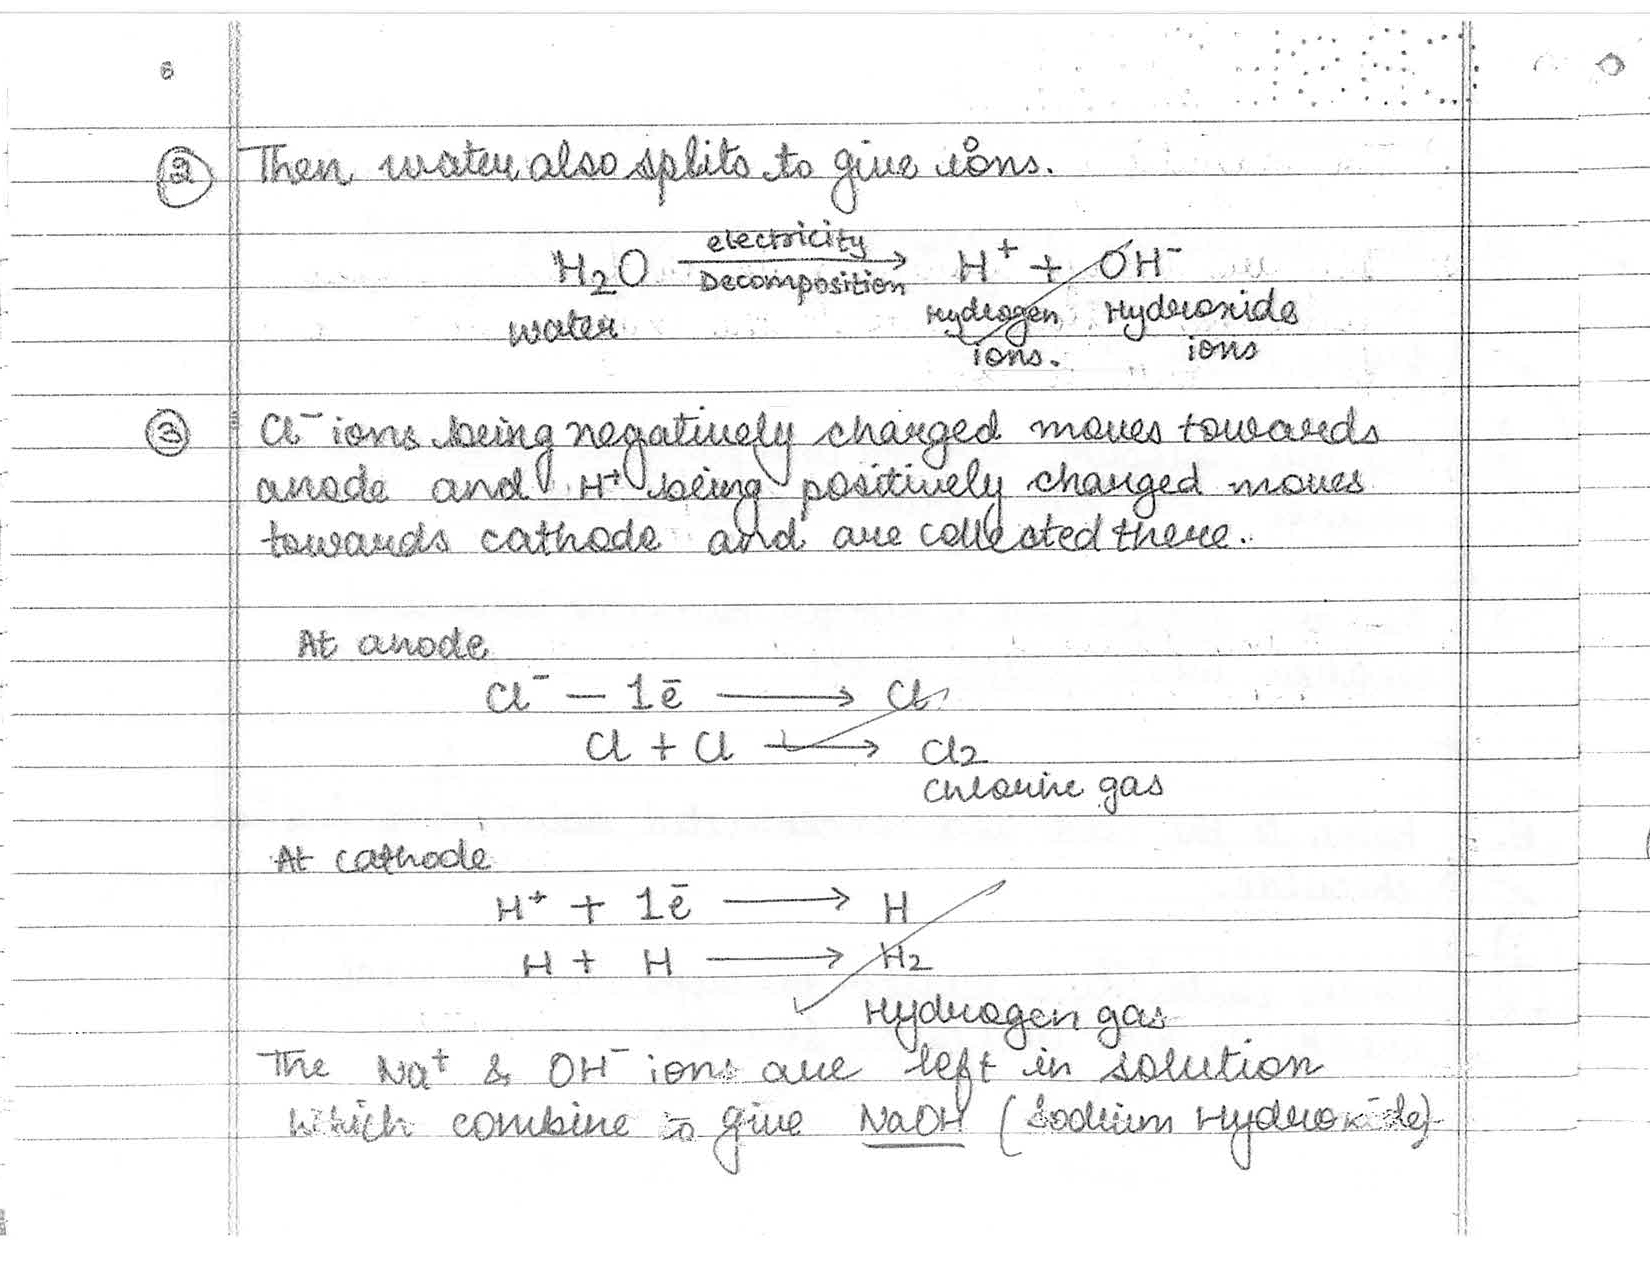 6
② Then water also splits to give ions.
H₂O —electricity/Decomposition→ H⁺ + OH⁻
water Hydrogen ions. Hydroxide ions
③ Cl⁻ ions being negatively charged moves towards
anode and H⁺ being positively charged moves
towards cathode and are collected there.
At anode
Cl⁻ — 1ē ⟶ Cl
Cl + Cl ⟶ Cl₂
Chlorine gas
At cathode
H⁺ + 1ē ⟶ H
H + H ⟶ H₂
Hydrogen gas
The Na⁺ & OH⁻ ions are left in solution
which combine to give NaOH (Sodium Hydroxide)